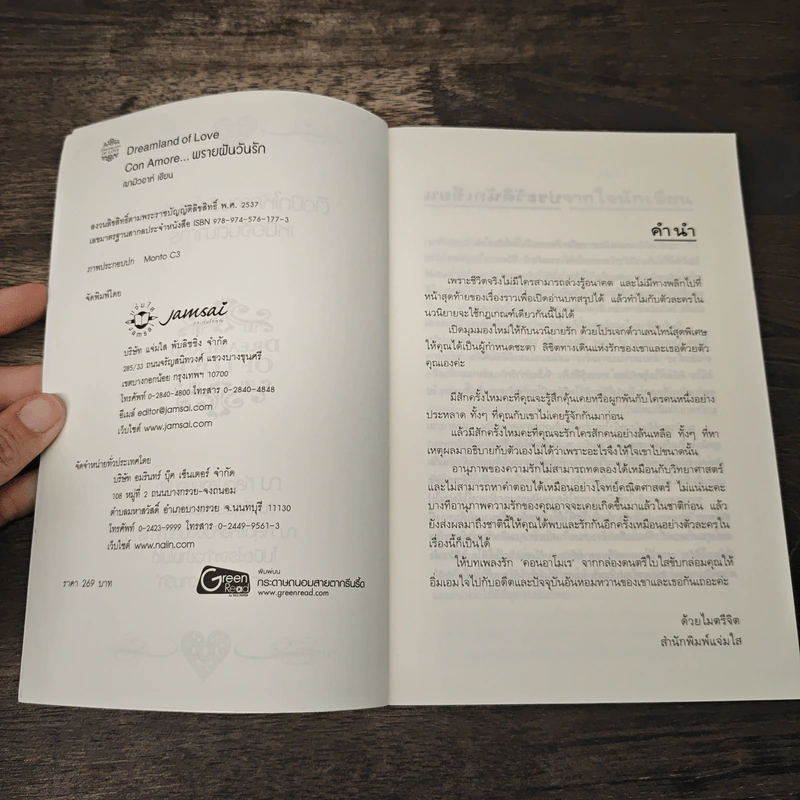 Dreamland of Love
Con Amore... พรายฝันวันรัก
ญามิวอาห์ เฮียน
สงวนลิขสิทธิ์ตามพระราชบัญญัติลิขสิทธิ์ พ.ศ. 2537
เลขมาตรฐานสากลประจำหนังสือ ISBN 978-974-576-177-3
ภาพประกอบปก Monto C3
จัดพิมพ์โดย
แจ่มใส
jamsai
jamsai
บริษัท แจ่มใส พับลิชชิ่ง จำกัด
285/33 ถนนจรัญสนิทวงศ์ แขวงบางขุนศรี
เขตบางกอกน้อย กรุงเทพฯ 10700
โทรศัพท์ 0-2840-4800 โทรสาร 0-2840-4848
อีเมล์ editor@jamsai.com
เว็บไซต์ www.jamsai.com
จัดจำหน่ายทั่วประเทศโดย
บริษัท อมรินทร์ บุ๊ค เซ็นเตอร์ จำกัด
108 หมู่ที่ 2 ถนนบางกรวย-จงถนอม
ตำบลมหาสวัสดิ์ อำเภอบางกรวย จ.นนทบุรี 11130
โทรศัพท์ 0-2423-9999 โทรสาร 0-2449-9561-3
เว็บไซต์ www.naiin.com
ราคา 269 บาท
Green
Read
พิมพ์บน
กระดาษถนอมสายตากรีนรี้ด
www.greenread.com
คำนำ
เพราะชีวิตจริงไม่มีใครสามารถล่วงรู้อนาคต และไม่มีทางพลิกไปที่
หน้าสุดท้ายของเรื่องราวเพื่อเปิดอ่านบทสรุปได้ แล้วทำไมกับตัวละครใน
นวนิยายจะใช้กฎเกณฑ์เดียวกันนี้ไม่ได้
เปิดมุมมองใหม่ให้กับนวนิยายรัก ด้วยโปรเจกต์วาเลนไทน์สุดพิเศษ
ให้คุณได้เป็นผู้กำหนดชะตา ลิขิตทางเดินแห่งรักของเขาและเธอด้วยตัว
คุณเองค่ะ
มีสักครั้งไหมคะที่คุณจะรู้สึกคุ้นเคยหรือผูกพันกับใครคนหนึ่งอย่าง
ประหลาด ทั้งๆ ที่คุณกับเขาไม่เคยรู้จักกันมาก่อน
แล้วมีสักครั้งไหมคะที่คุณจะรักใครสักคนอย่างล้นเหลือ ทั้งๆ ที่หา
เหตุผลมาอธิบายกับตัวเองไม่ได้ว่าเพราะอะไรจึงให้ใจเขาไปขนาดนั้น
อานุภาพของความรักไม่สามารถทดลองได้เหมือนกับวิทยาศาสตร์
และไม่สามารถหาคำตอบได้เหมือนอย่างโจทย์คณิตศาสตร์ ไม่แน่นะคะ
บางทีอานุภาพความรักของคุณอาจจะเคยเกิดขึ้นมาแล้วในชาติก่อน แล้ว
ยังส่งผลมาถึงชาตินี้ให้คุณได้พบและรักกันอีกครั้งเหมือนอย่างตัวละครใน
เรื่องนี้ก็เป็นได้
ให้บทเพลงรัก 'คอนอาโมเร' จากกล่องดนตรีใบใสขับกล่อมคุณให้
อิ่มเอมใจไปกับอดีตและปัจจุบันอันหอมหวานของเขาและเธอกันเถอะค่ะ
ด้วยไมตรีจิต
สำนักพิมพ์แจ่มใส